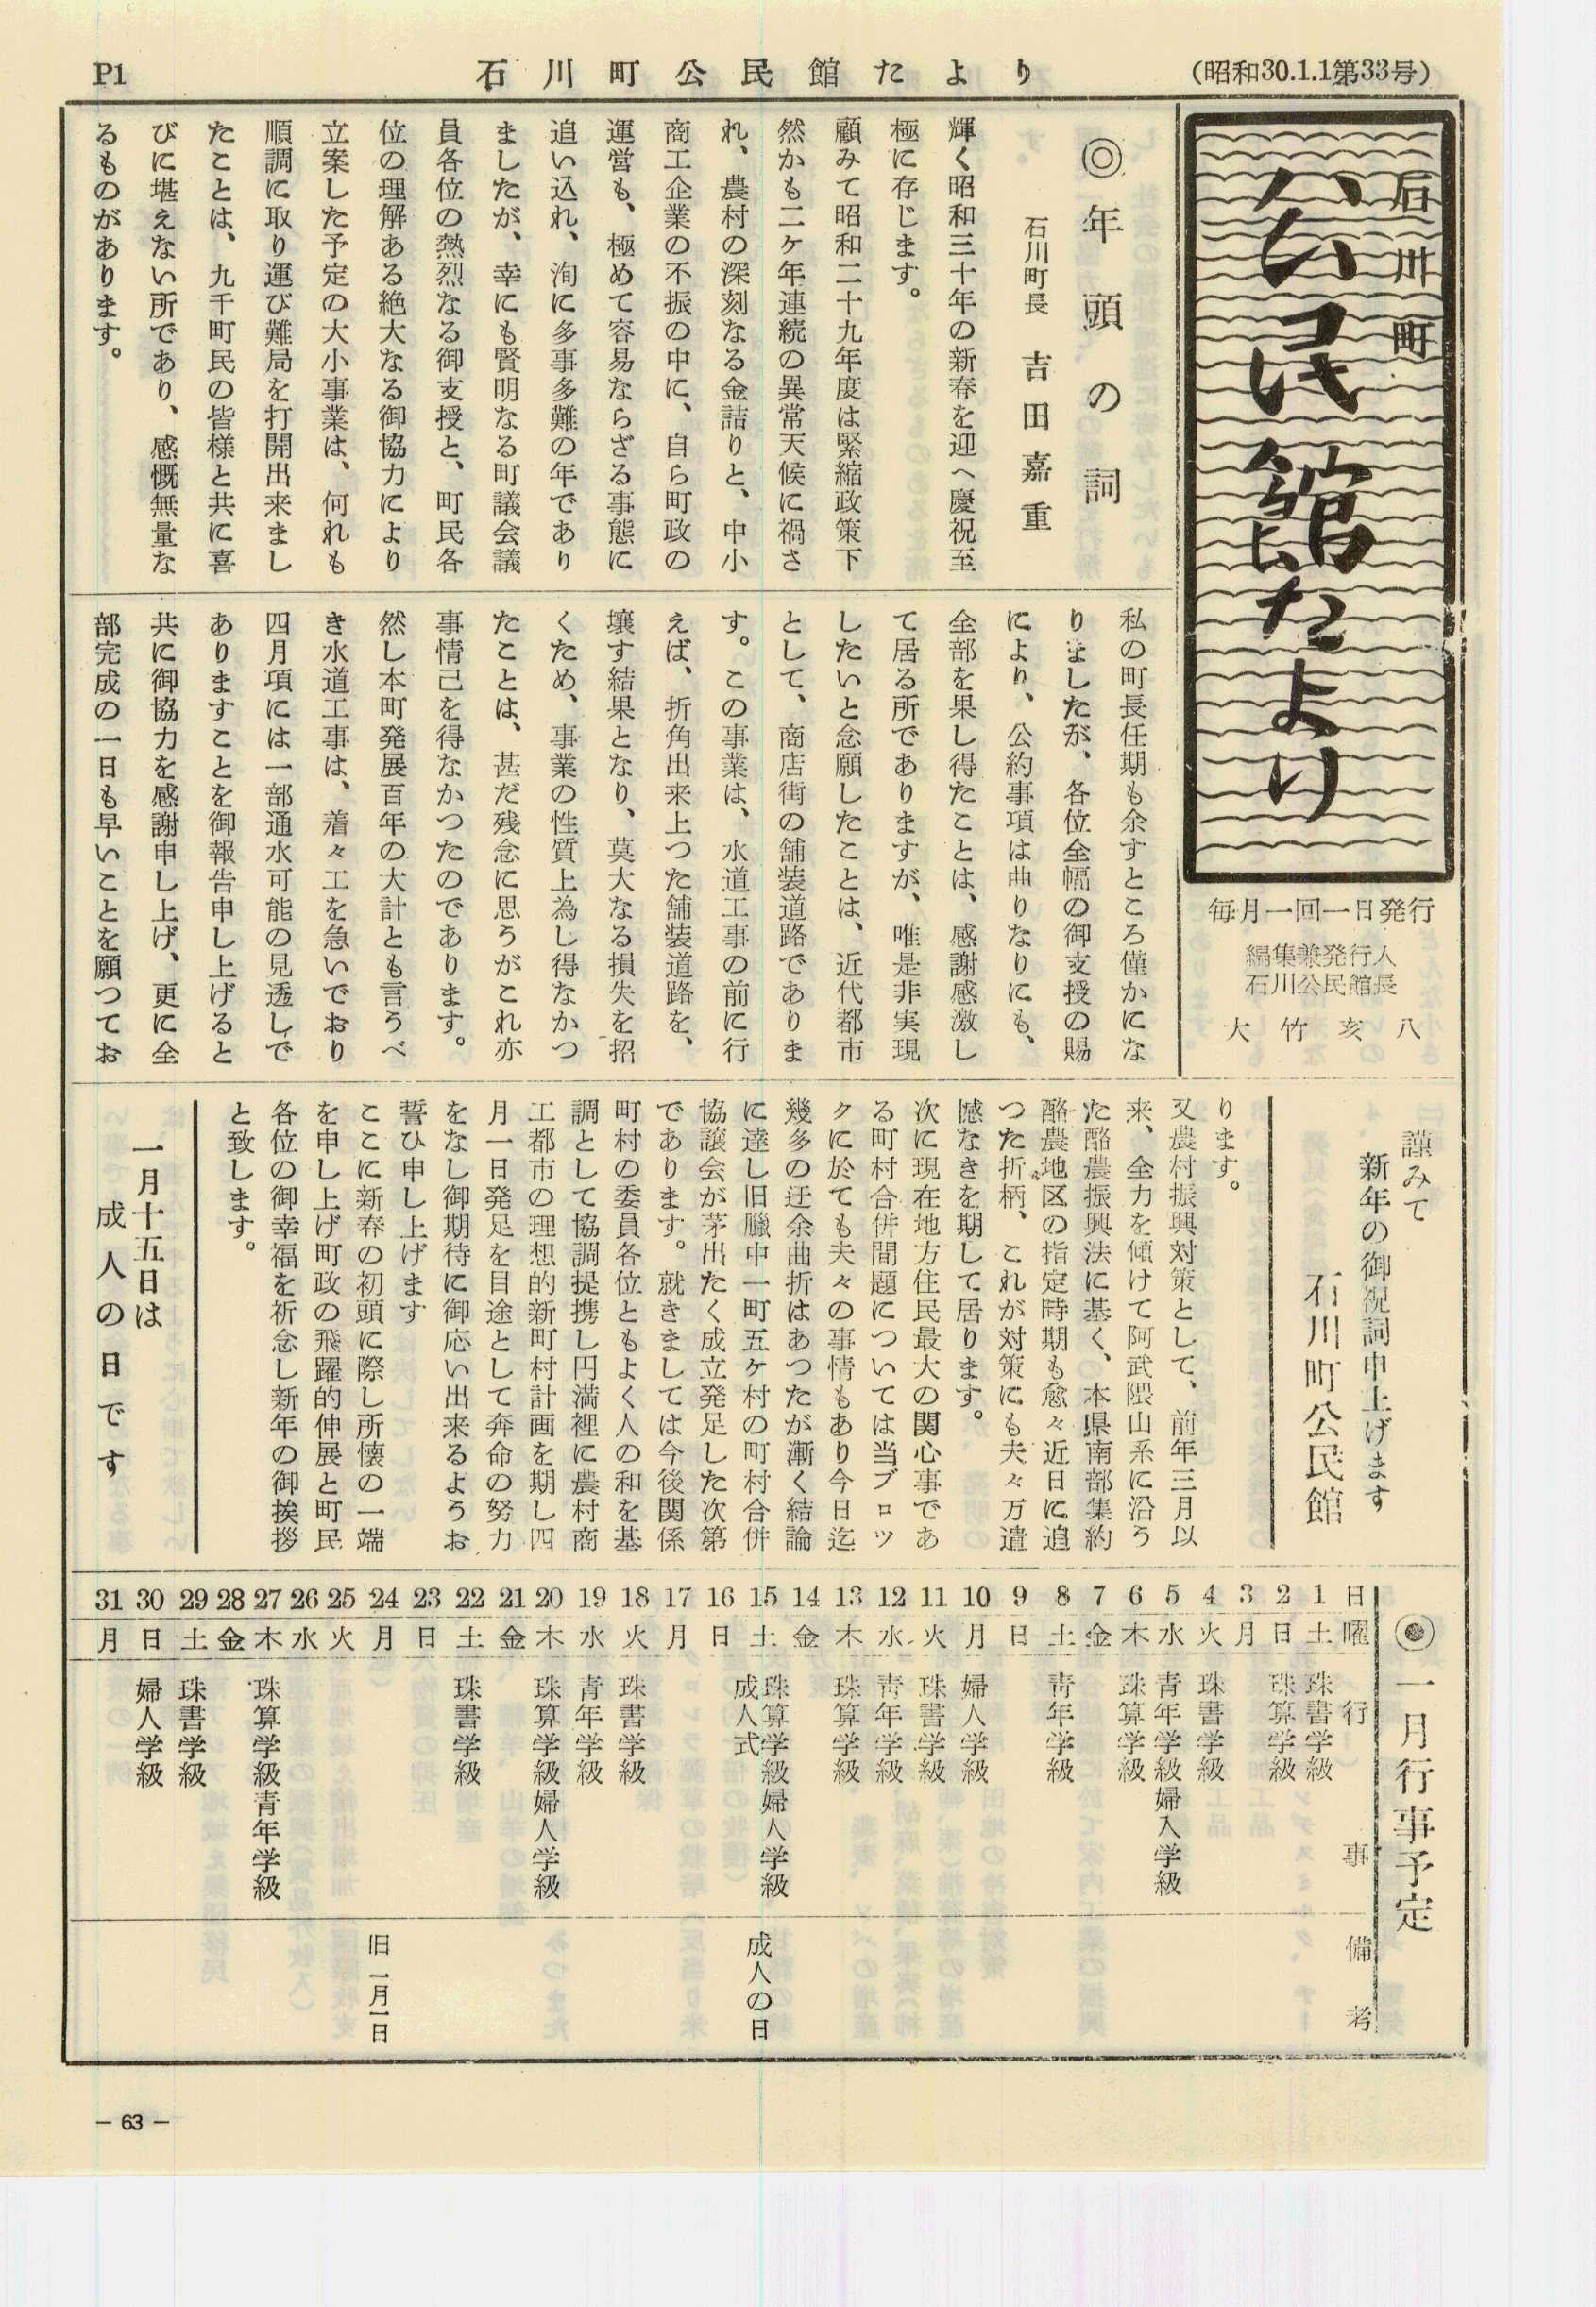 P1
石川町公民館たより
(昭和30.1.1第33号)
石川町
公民館たより
毎月一回一日発行
編集兼発行人
石川公民館長
大竹亥八
◎年頭の詞
石川町長 吉田嘉重
輝く昭和三十年の新春を迎へ慶祝至
極に存じます。
顧みて昭和二十九年度は緊縮政策下
然かも二ケ年連続の異常天候に禍さ
れ、農村の深刻なる金詰りと、中小
商工企業の不振の中に、自ら町政の
運営も、極めて容易ならざる事態に
追い込れ、洵に多事多難の年であり
ましたが、幸にも賢明なる町議会議
員各位の熱烈なる御支授と、町民各
位の理解ある絶大なる御協力により
立案した予定の大小事業は、何れも
順調に取り運び難局を打開出来まし
たことは、九千町民の皆様と共に喜
びに堪えない所であり、感慨無量な
るものがあります。
私の町長任期も余すところ僅かにな
りましたが、各位全幅の御支授の賜
により、公約事項は曲りなりにも、
全部を果し得たことは、感謝感激し
て居る所でありますが、唯是非実現
したいと念願したことは、近代都市
として、商店街の舗装道路でありま
す。この事業は、水道工事の前に行
えば、折角出来上つた舗装道路を、
壊す結果となり、莫大なる損失を招
くため、事業の性質上為し得なかつ
たことは、甚だ残念に思うがこれ亦
事情己を得なかつたのであります。
然し本町発展百年の大計とも言うべ
き水道工事は、着々工を急いでおり
四月項には一部通水可能の見透しで
ありますことを御報告申し上げると
共に御協力を感謝申し上げ、更に全
部完成の一日も早いことを願つてお
謹みて
新年の御祝詞申上げます
石川町公民館
ります。
又農村振興対策として、前年三月以
来、全力を傾けて阿武隈山系に沿う
た酪農振興法に基く、本県南部集約
酪農地区の指定時期も愈々近日に追
つた折柄、これが対策にも夫々万遣
憾なきを期して居ります。
次に現在地方住民最大の関心事であ
る町村合併問題については当ブロツ
クに於ても夫々の事情もあり今日迄
幾多の迂余曲折はあつたが漸く結論
に達し旧臘中一町五ケ村の町村合併
協譲会が茅出たく成立発足した次第
であります。就きましては今後関係
町村の委員各位ともよく人の和を基
調として協調提携し円満裡に農村商
工都市の理想的新町村計画を期し四
月一日発足を目途として奔命の努力
をなし御期待に御応い出来るようお
誓ひ申し上げます
ここに新春の初頭に際し所懐の一端
を申し上げ町政の飛躍的伸展と町民
各位の御幸福を祈念し新年の御挨拶
と致します。
一月十五日は
成人の日です
◉一月行事予定
日 曜 行事 備考
1 土 珠書学級
2 日 珠算学級
3 月
4 火 珠書学級
5 水 青年学級婦人学級
6 木 珠算学級
7 金
8 土 青年学級
9 日
10 月 婦人学級
11 火 珠書学級
12 水 青年学級
13 木 珠算学級
14 金
15 土 珠算学級婦人学級 成人式 成人の日
16 日
17 月
18 火 珠書学級
19 水 青年学級
20 木 珠算学級婦人学級
21 金
22 土 珠書学級
23 日
24 月 旧一月一日
25 火
26 水
27 木 珠算学級青年学級
28 金
29 土 珠書学級
30 日 婦人学級
31 月
— 63 —